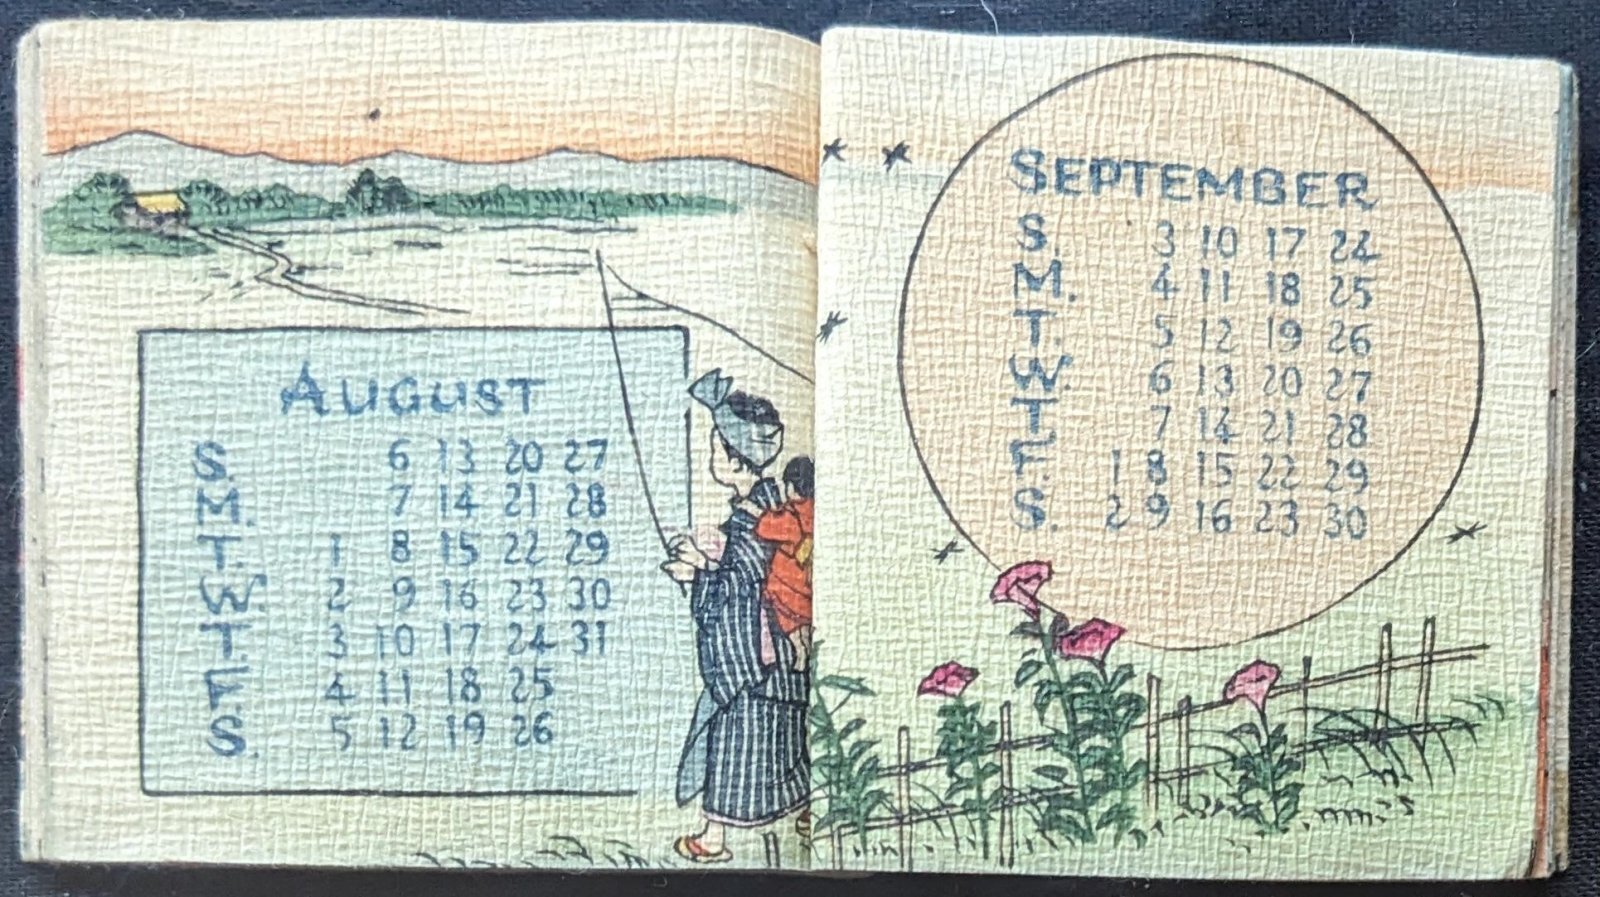 AUGUST
S. 6 13 20 27
M. 7 14 21 28
T. 1 8 15 22 29
W. 2 9 16 23 30
T. 3 10 17 24 31
F. 4 11 18 25
S. 5 12 19 26
SEPTEMBER
S. 3 10 17 24
M. 4 11 18 25
T. 5 12 19 26
W. 6 13 20 27
T. 7 14 21 28
F. 1 8 15 22 29
S. 2 9 16 23 30